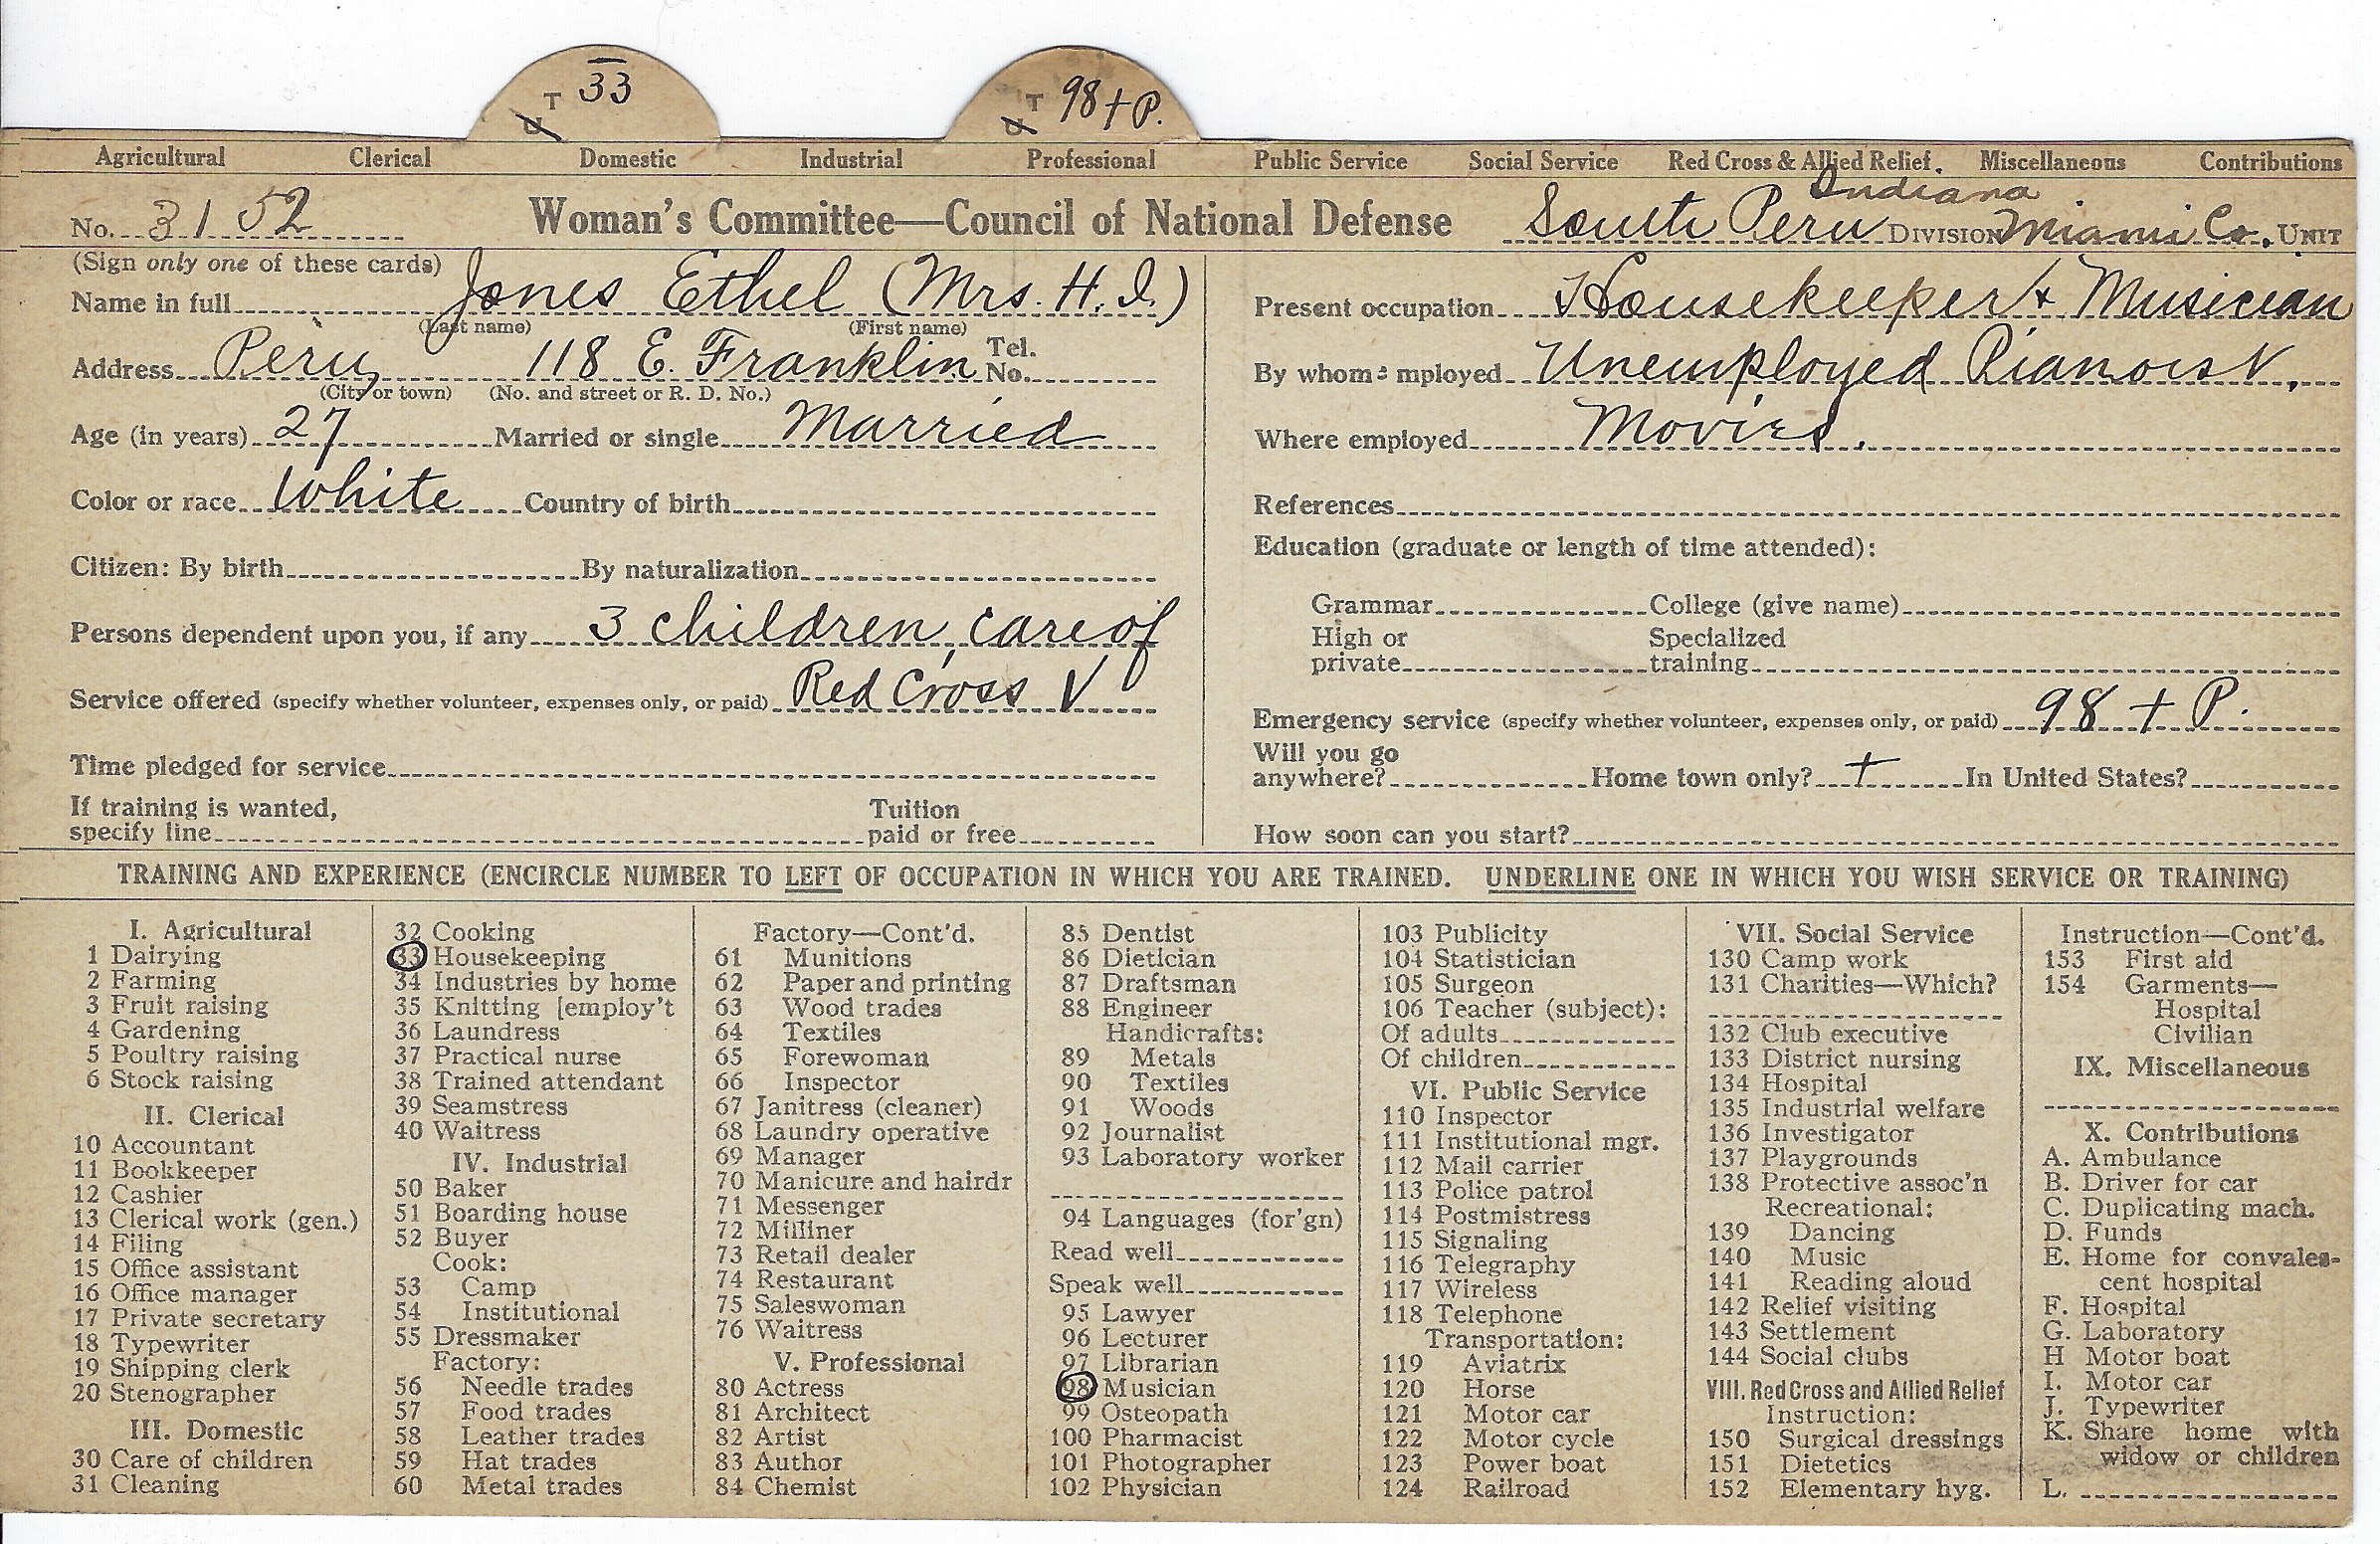 T 33 T 98 + P.
U U
Agricultural Clerical Domestic Industrial Professional Public Service Social Service Red Cross & Allied Relief. Miscellaneous Contributions
No. 3152 Woman's Committee—Council of National Defense South Peru Indiana DIVISION Miami Co. UNIT
(Sign only one of these cards)
Name in full Jones Ethel (Mrs. H. I.)
(Last name) (First name)
Address Peru 118 E. Franklin Tel. No.
(City or town) (No. and street or R. D. No.)
Age (in years) 27 Married or single Married
Color or race White Country of birth
Citizen: By birth By naturalization
Persons dependent upon you, if any 3 children, care of
Service offered (specify whether volunteer, expenses only, or paid) Red Cross V
Time pledged for service
If training is wanted, specify line Tuition paid or free
Present occupation Housekeeper & Musician
By whom employed Unemployed Pianoist.
Where employed Movies.
References
Education (graduate or length of time attended):
Grammar College (give name)
High or private Specialized training
Emergency service (specify whether volunteer, expenses only, or paid) 98 + P.
Will you go anywhere? Home town only? + In United States?
How soon can you start?
TRAINING AND EXPERIENCE (ENCIRCLE NUMBER TO LEFT OF OCCUPATION IN WHICH YOU ARE TRAINED. UNDERLINE ONE IN WHICH YOU WISH SERVICE OR TRAINING)
I. Agricultural
1 Dairying
2 Farming
3 Fruit raising
4 Gardening
5 Poultry raising
6 Stock raising
II. Clerical
10 Accountant
11 Bookkeeper
12 Cashier
13 Clerical work (gen.)
14 Filing
15 Office assistant
16 Office manager
17 Private secretary
18 Typewriter
19 Shipping clerk
20 Stenographer
III. Domestic
30 Care of children
31 Cleaning
32 Cooking
33 Housekeeping
34 Industries by home
35 Knitting [employ't
36 Laundress
37 Practical nurse
38 Trained attendant
39 Seamstress
40 Waitress
IV. Industrial
50 Baker
51 Boarding house
52 Buyer
Cook:
53 Camp
54 Institutional
55 Dressmaker
Factory:
56 Needle trades
57 Food trades
58 Leather trades
59 Hat trades
60 Metal trades
Factory—Cont'd.
61 Munitions
62 Paper and printing
63 Wood trades
64 Textiles
65 Forewoman
66 Inspector
67 Janitress (cleaner)
68 Laundry operative
69 Manager
70 Manicure and hairdr
71 Messenger
72 Milliner
73 Retail dealer
74 Restaurant
75 Saleswoman
76 Waitress
V. Professional
80 Actress
81 Architect
82 Artist
83 Author
84 Chemist
85 Dentist
86 Dietician
87 Draftsman
88 Engineer
Handicrafts:
89 Metals
90 Textiles
91 Woods
92 Journalist
93 Laboratory worker
94 Languages (for'gn)
Read well
Speak well
95 Lawyer
96 Lecturer
97 Librarian
98 Musician
99 Osteopath
100 Pharmacist
101 Photographer
102 Physician
103 Publicity
104 Statistician
105 Surgeon
106 Teacher (subject):
Of adults
Of children
VI. Public Service
110 Inspector
111 Institutional mgr.
112 Mail carrier
113 Police patrol
114 Postmistress
115 Signaling
116 Telegraphy
117 Wireless
118 Telephone
Transportation:
119 Aviatrix
120 Horse
121 Motor car
122 Motor cycle
123 Power boat
124 Railroad
VII. Social Service
130 Camp work
131 Charities—Which?
132 Club executive
133 District nursing
134 Hospital
135 Industrial welfare
136 Investigator
137 Playgrounds
138 Protective assoc'n
Recreational:
139 Dancing
140 Music
141 Reading aloud
142 Relief visiting
143 Settlement
144 Social clubs
VIII. Red Cross and Allied Relief
Instruction:
150 Surgical dressings
151 Dietetics
152 Elementary hyg.
Instruction—Cont'd.
153 First aid
154 Garments—
Hospital
Civilian
IX. Miscellaneous
X. Contributions
A. Ambulance
B. Driver for car
C. Duplicating mach.
D. Funds
E. Home for convales-
cent hospital
F. Hospital
G. Laboratory
H Motor boat
I. Motor car
J. Typewriter
K. Share home with
widow or children
L.